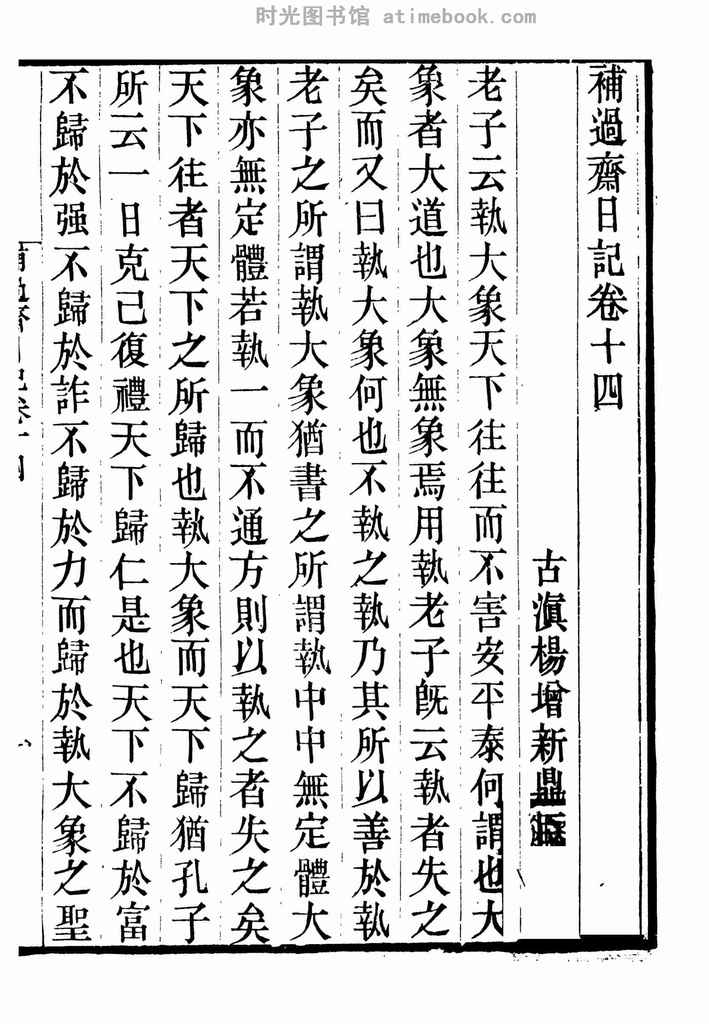 时光图书馆 atimebook.com
補過齋日記卷十四
古滇楊增新鼎臣
老子云執大象天下往往而不害安平泰何謂也大
象者大道也大象無象焉用執老子旣云執者失之
矣而又曰執大象何也不執之執乃其所以善於執
老子之所謂執大象猶書之所謂執中中無定體大
象亦無定體若執一而不通方則以執之者失之矣
天下往者天下之所歸也執大象而天下歸猶孔子
所云一日克己復禮天下歸仁是也天下不歸於富
不歸於强不歸於詐不歸於力而歸於執大象之聖
補過齋日記卷十四